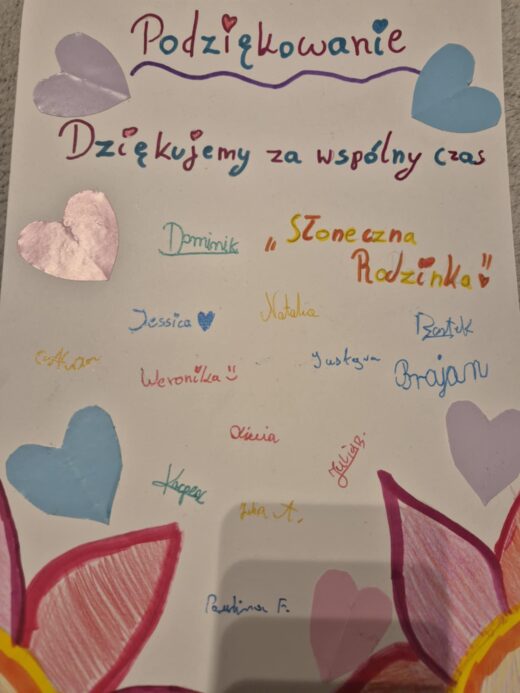 Podziękowanie
Dziękujemy za wspólny czas
Dominik
„Słoneczna
Rodzinka"
Jessica
Natalia
Bartek
Weronika :)
Justyna
Brajan
Oliwia
Julia B.
Kacper
Julia A.
Paulina F.